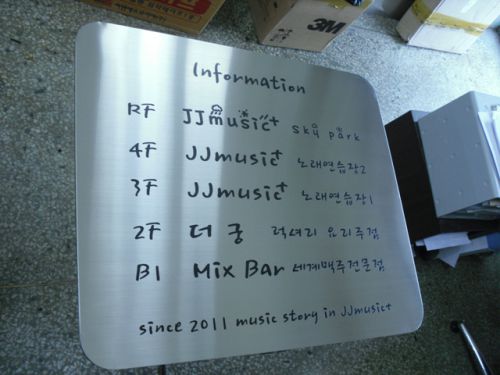 Information
RF JJmusic+ sky park
4F JJmusic+ 노래연습장2
3F JJmusic+ 노래연습장1
2F 더 궁 럭셔리 요리주점
B1 Mix Bar 세계맥주전문점
since 2011 music story in JJmusic+
3M